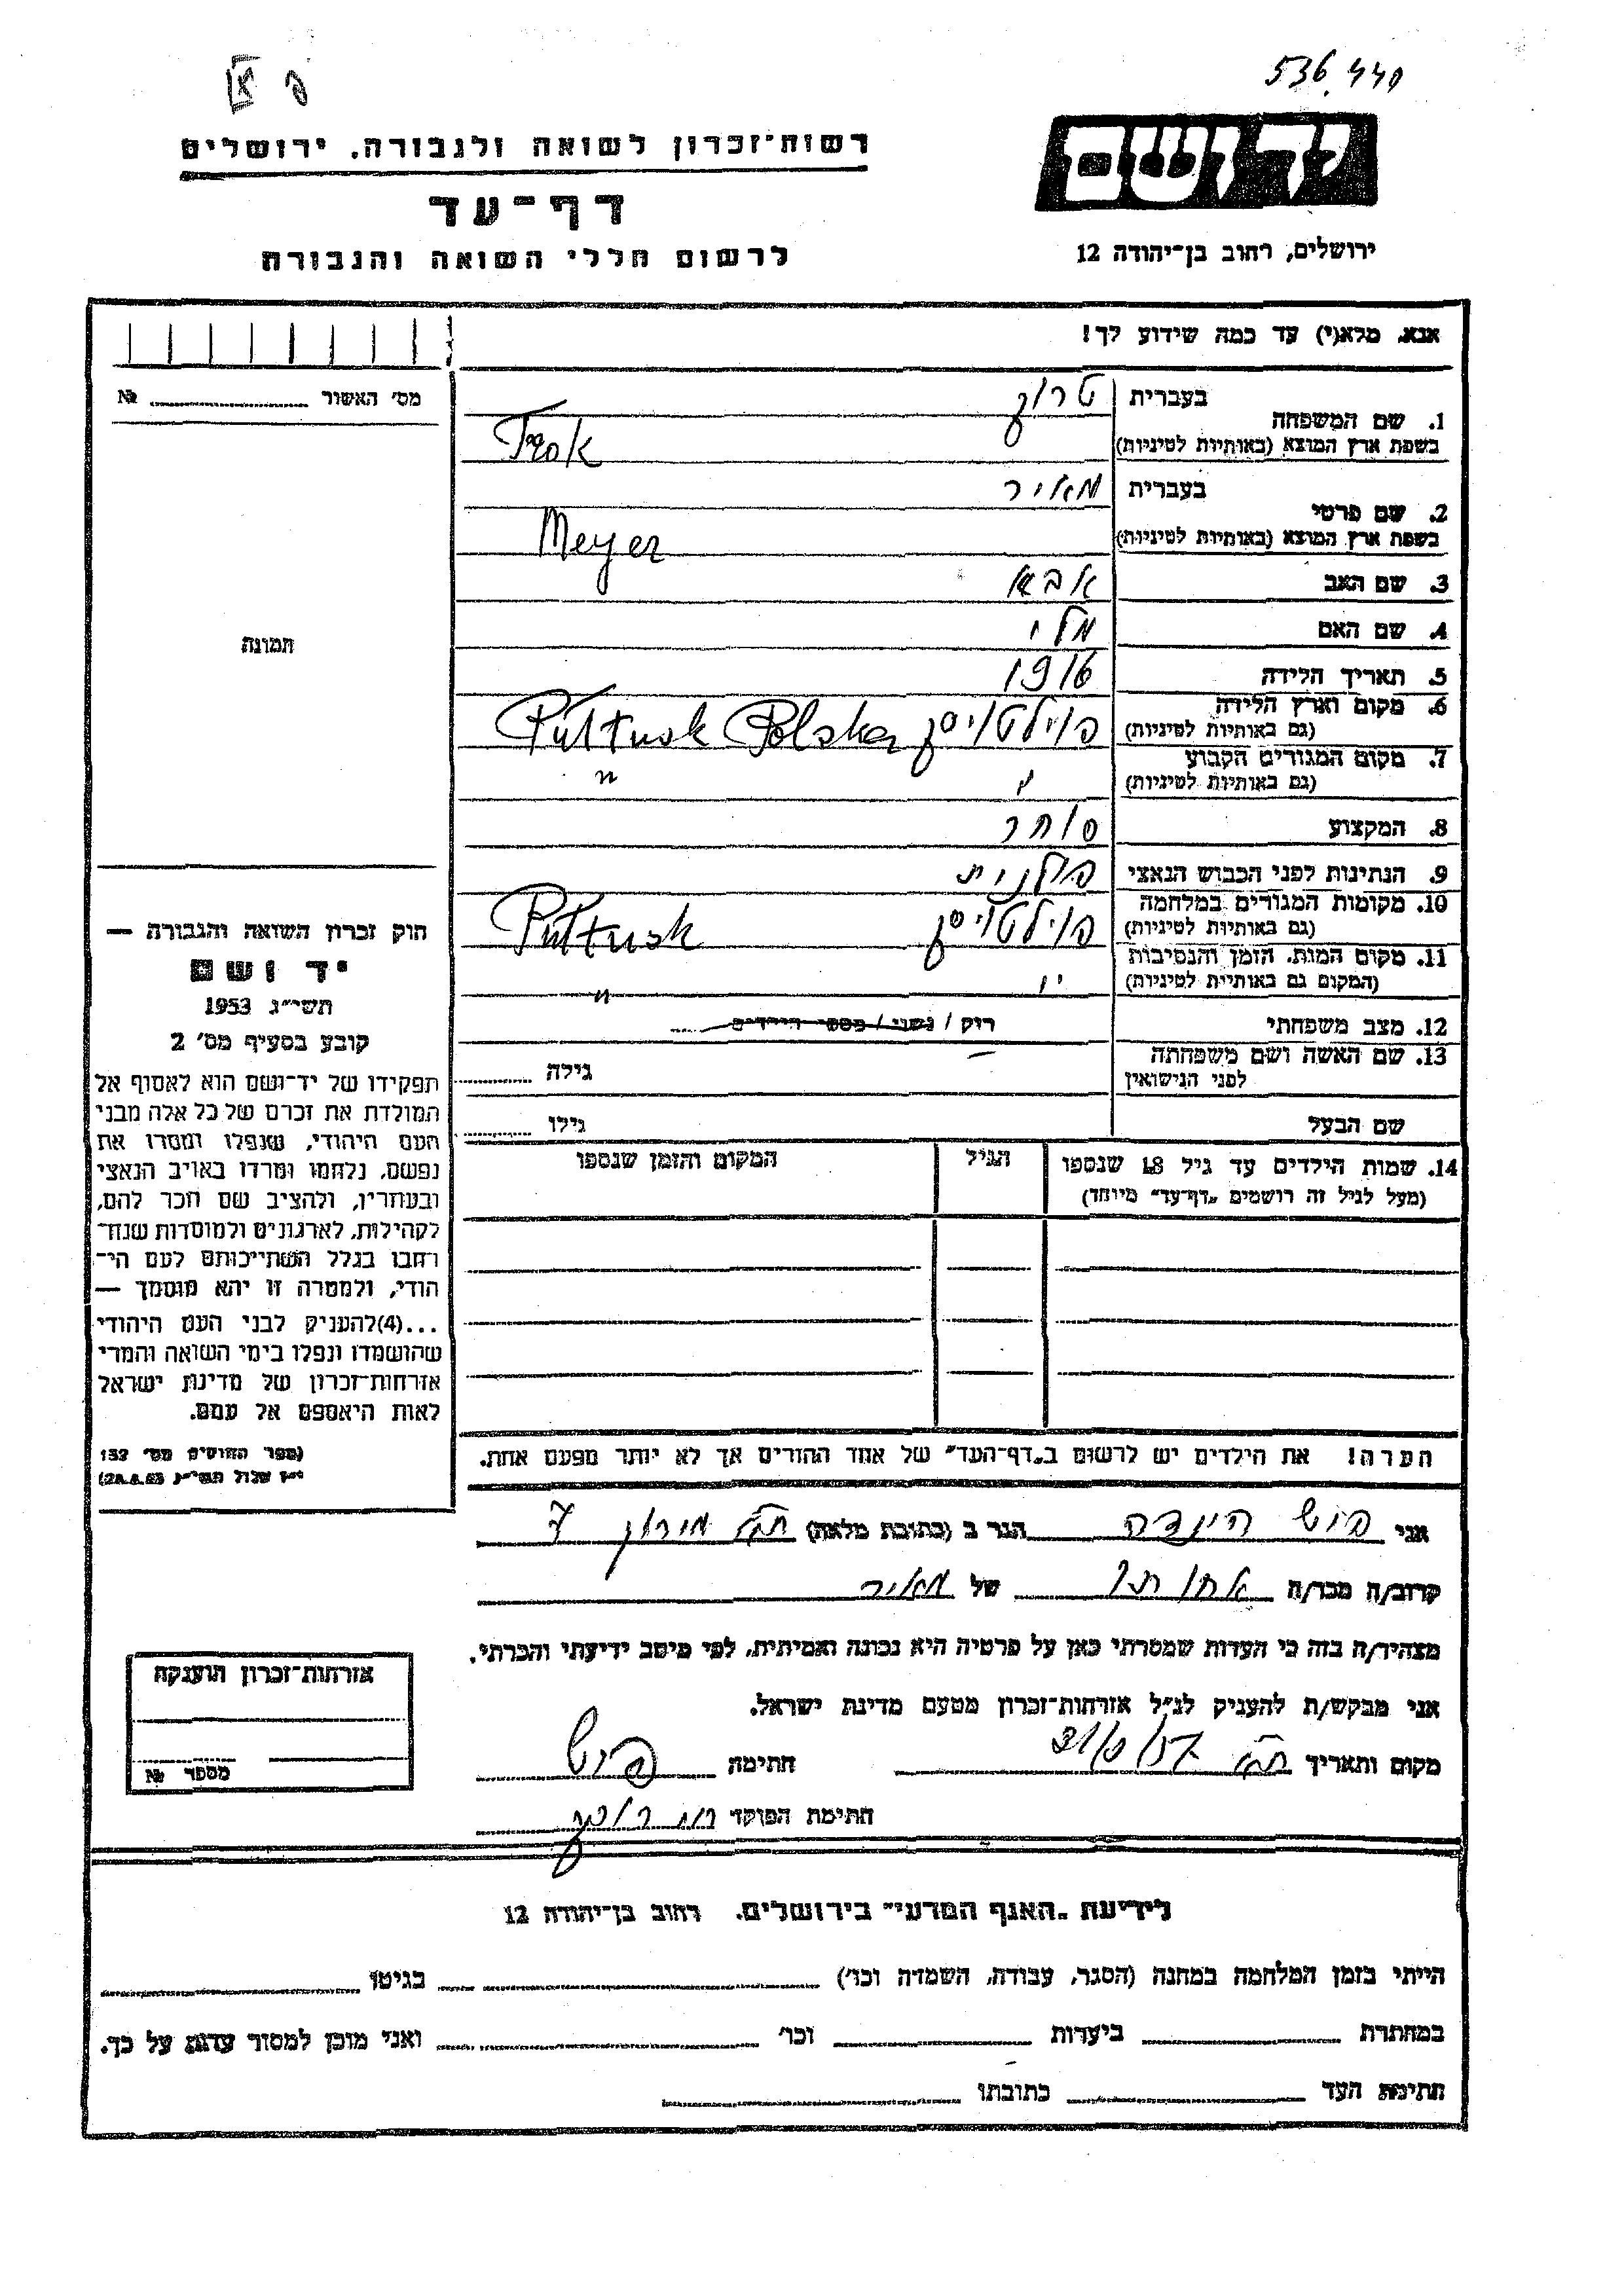 536.440
רשות־זכרון לשואה ולגבורה. ירושלים
דף־עד
לרשום חללי השואה והגבורה
יד ושם
ירושלים, רחוב בן־יהודה 12
אנא. מלא(י) עד כמה שידוע לך!
מס׳ האשור № 
1. שם המשפחה
בעברית טרוק
בשפת ארץ המוצא (באותיות לטיניות) Trok
2. שם פרטי
בעברית מאיר
בשפת ארץ המוצא (באותיות לטיניות) Meyer
3. שם האב אבא
4. שם האם מלי
5. תאריך הלידה 1916
6. מקום וארץ הלידה פוילטויסק Pultusk Polska
(גם באותיות לטיניות)
7. מקום המגורים הקבוע " "
(גם באותיות לטיניות)
8. המקצוע סוחר
9. הנתינות לפני הכבוש הנאצי פולנית
10. מקומות המגורים במלחמה פוילטויסק Pultusk
(גם באותיות לטיניות)
11. מקום המות. הזמן והנסיבות " "
(המקום גם באותיות לטיניות)
12. מצב משפחתי רוק / נשוי / מספר הילדים
13. שם האשה ושם משפחתה
לפני הנישואין
גילה
שם הבעל גילו
14. שמות הילדים עד גיל 18 שנספו הגיל המקום והזמן שנספו
(מעל לגיל זה רושמים „דף־עד" מיוחד)
הערה! את הילדים יש לרשום ב„דף־העד" של אחד ההורים אך לא יותר מפעם אחת.
תמונה
חוק זכרון השואה והגבורה —
יד ושם
תשי״ג 1953
קובע בסעיף מס׳ 2
תפקידו של יד־ושם הוא לאסוף אל
המולדת את זכרם של כל אלה מבני
העם היהודי, שנפלו ומסרו את
נפשם, נלחמו ומרדו באויב הנאצי
ובעוזריו, ולהציב שם וזכר להם,
לקהילות, לארגונים ולמוסדות שנח־
רבו בגלל השתייכותם לעם הי־
הודי, ולמטרה זו יהא מוסמך —
...(4)להעניק לבני העם היהודי
שהושמדו ונפלו בימי השואה והמרי
אזרחות־זכרון של מדינת ישראל
לאות היאספם אל עמם.
(ספר החוקים מס׳ 132
י״ז אלול תשי״ג 28.8.53)
אני פוש הינדה הגר ב (כתובת מלאה) ת״א מירון 7
קרוב/ה מכר/ה אחותו של מאיר
מצהיר/ה בזה כי העדות שמסרתי כאן על פרטיה היא נכונה ואמיתית, לפי מיטב ידיעתי והכרתי.
אני מבקש/ת להעניק לנ״ל אזרחות־זכרון מטעם מדינת ישראל.
מקום ותאריך ת״א חתימה פוש
חתימת הפוקד
אזרחות־זכרון הוענקה
מספר №
לידיעת „האגף המדעי" בירושלים. רחוב בן־יהודה 12
הייתי בזמן המלחמה במחנה (הסגר, עבודה, השמדה וכו׳) בגיטו
במחתרת ביערות וכו׳ ואני מוכן למסור עדות על כך.
חתימת העד כתובתו